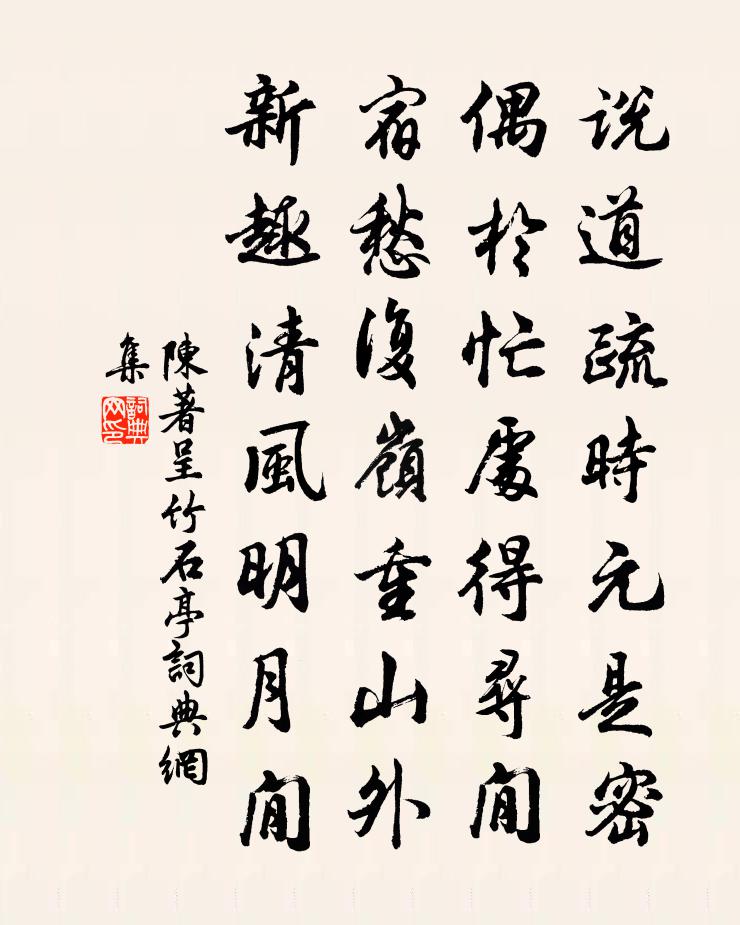 说道疏時元是密
偶於忙處得尋閒
宿愁復嶺重山外
新趣清風明月閒
陳著呈竹石亭詞典網
集
詞典
网印